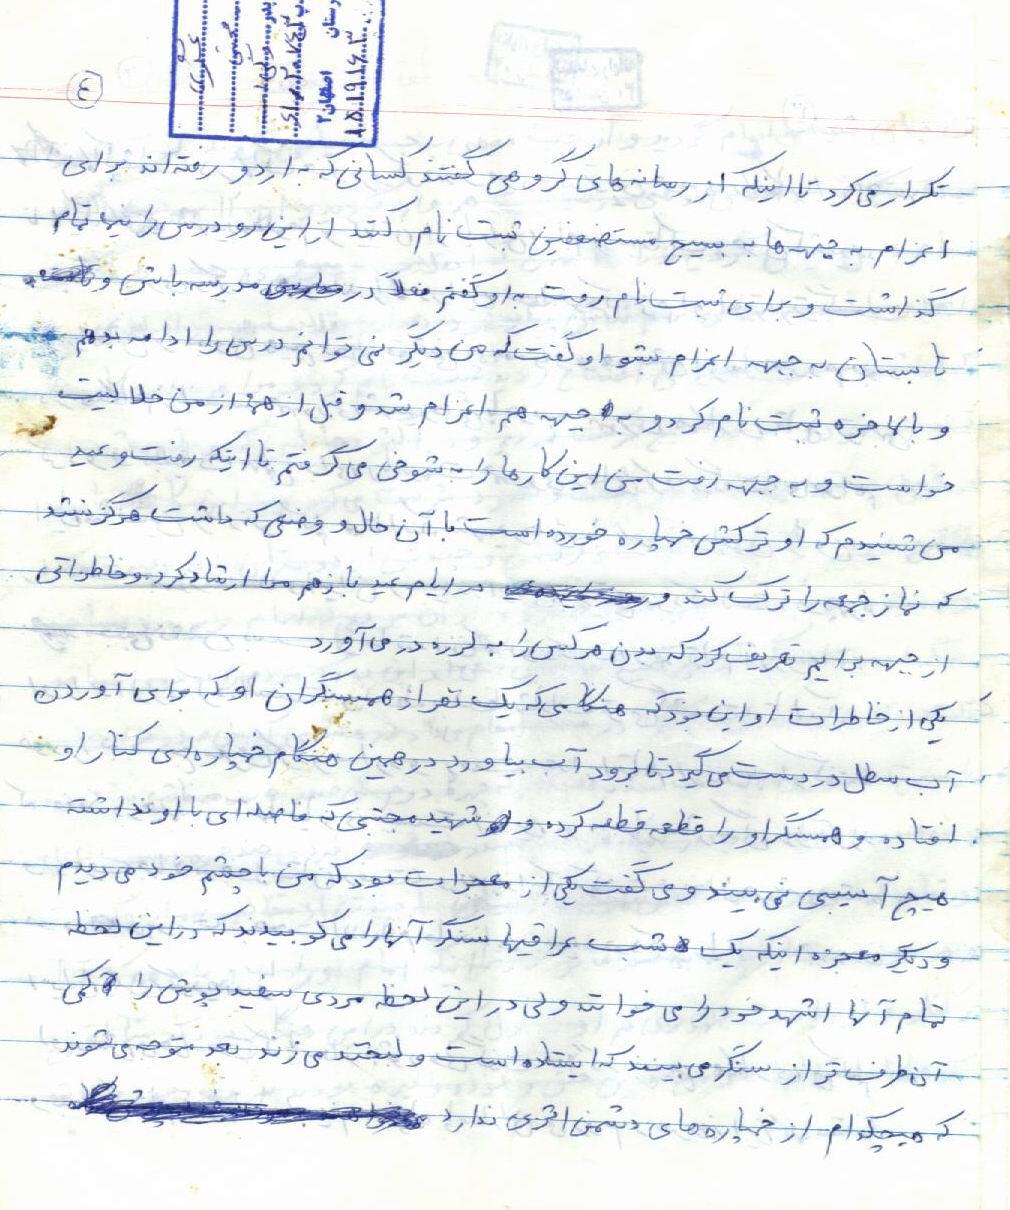 ۴
اصفهان ۲
تکرار می‌کرد تا اینکه از رسانه‌های گروهی گفتند کسانی که به اردو رفته‌اند برای
اعزام به جبهه‌ها به بسیج مستضعفین ثبت نام کنند از این رو درس را نیمه تمام
گذاشت و برای ثبت نام رفت به او گفتم فعلاً در مدرسه باش و
تابستان به جبهه اعزام بشو او گفت که من دیگر نمی توانم درس را ادامه بدهم
و بالاخره ثبت نام کرد و به جبهه هم اعزام شد و قبل از همه از من حلالیت
خواست و به جبهه رفت من این کارها را به شوخی می گرفتم تا اینکه رفت و عید
من شنیدم که او ترکش خمپاره خورده است با آن حال و وضعی که داشت هرگز نشد
که نماز جمعه را ترک کند و در ایام عید باز هم مرا ارشاد کرد و خاطراتی
از جبهه برایم تعریف کرد که بدن هر کس را به لرزه در می آورد
یکی از خاطرات او این بود که هنگامی که یک نفر از همسنگران او که برای آوردن
آب سطل در دست می گیرد تا برود آب بیاورد در همین هنگام خمپاره‌ای کنار او
افتاده و همسنگر او را قطعه قطعه کرده و شهید مجتبی که فاصله‌ای با او نداشته
هیچ آسیبی نمی بیند و می گفت یکی از معجزات بود که من با چشم خود می دیدم
و دیگر معجزه اینکه یک شب عراقیها سنگر آنها را می کوبیدند که در این لحظه
تمام آنها اشهد خود را می خوانند ولی در این لحظه مردی سفید پوش را کمی
آن طرف تر از سنگر می بینند که ایستاده است و لبخند می زند بعد متوجه می شوند
که هیچکدام از خمپاره‌های دشمن اثری ندارد